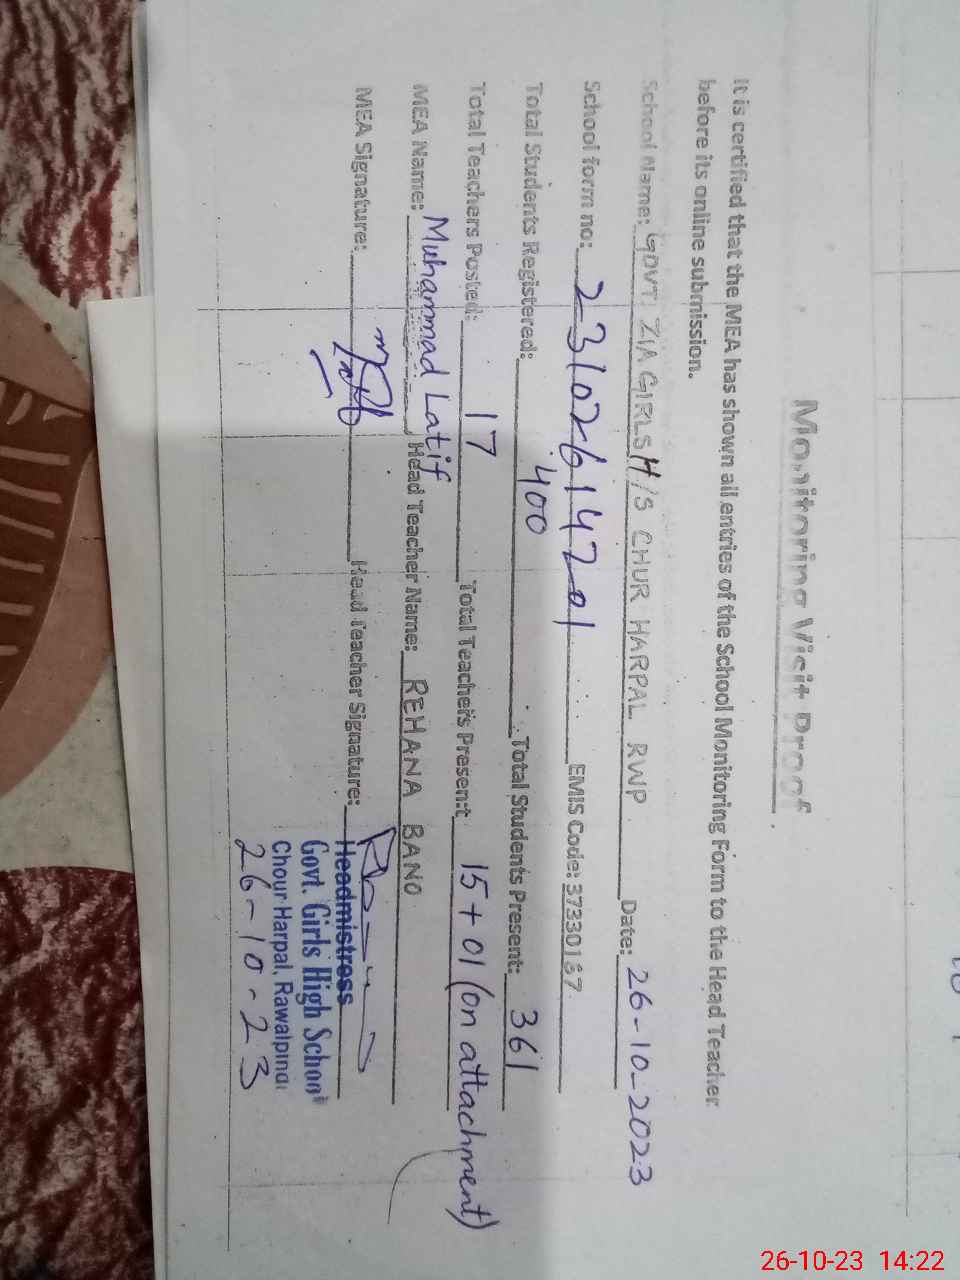 Monitoring Visit Proof
It is certified that the MEA has shown all entries of the School Monitoring Form to the Head Teacher
before its online submission.
School Name: GOVT. ZIA GIRLS H/S CHUR HARPAL RWP. Date: 26-10-2023
School form no: 231026147201 EMIS Code: 37330187
Total Students Registered: 400 Total Students Present: 361
Total Teachers Posted: 17 Total Teachers Present 15+01 (on attachment)
MEA Name: Muhammad Latif, Head Teacher Name: REHANA BANO
MEA Signature: Head Teacher Signature:
Headmistress
Govt. Girls High School
Chour Harpal, Rawalpindi
26-10-23
26-10-23 14:22